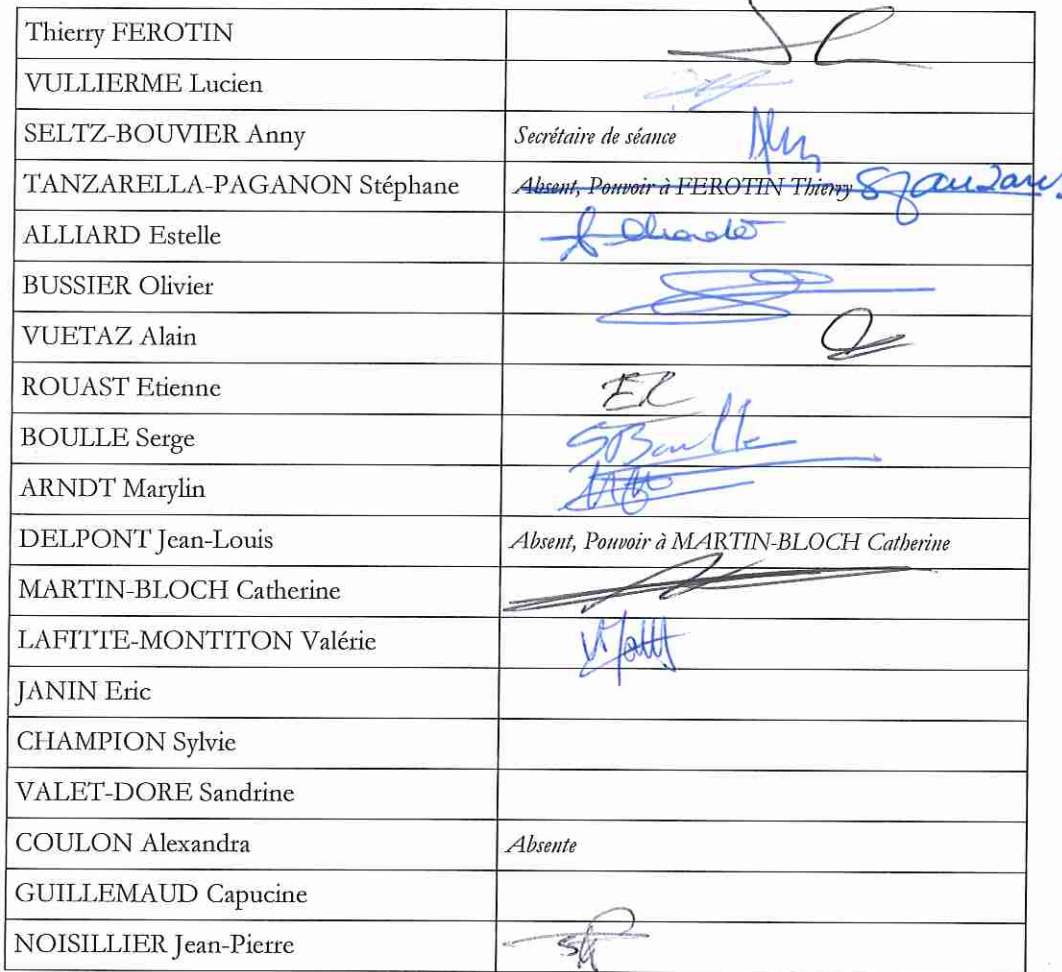 Thierry FEROTIN
VULLIERME Lucien
SELTZ-BOUVIER Anny Secrétaire de séance
TANZARELLA-PAGANON Stéphane Absent, Pouvoir à FEROTIN Thierry
ALLIARD Estelle
BUSSIER Olivier
VUETAZ Alain
ROUAST Etienne ER
BOULLE Serge SBoulle
ARNDT Marylin
DELPONT Jean-Louis Absent, Pouvoir à MARTIN-BLOCH Catherine
MARTIN-BLOCH Catherine
LAFITTE-MONTITON Valérie
JANIN Eric
CHAMPION Sylvie
VALET-DORE Sandrine
COULON Alexandra Absente
GUILLEMAUD Capucine
NOISILLIER Jean-Pierre